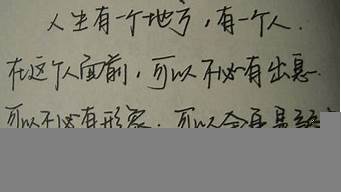 人生有一个地方，有一个人.
在这个人面前，可以不必有出息.
可以不必有形象. 可以